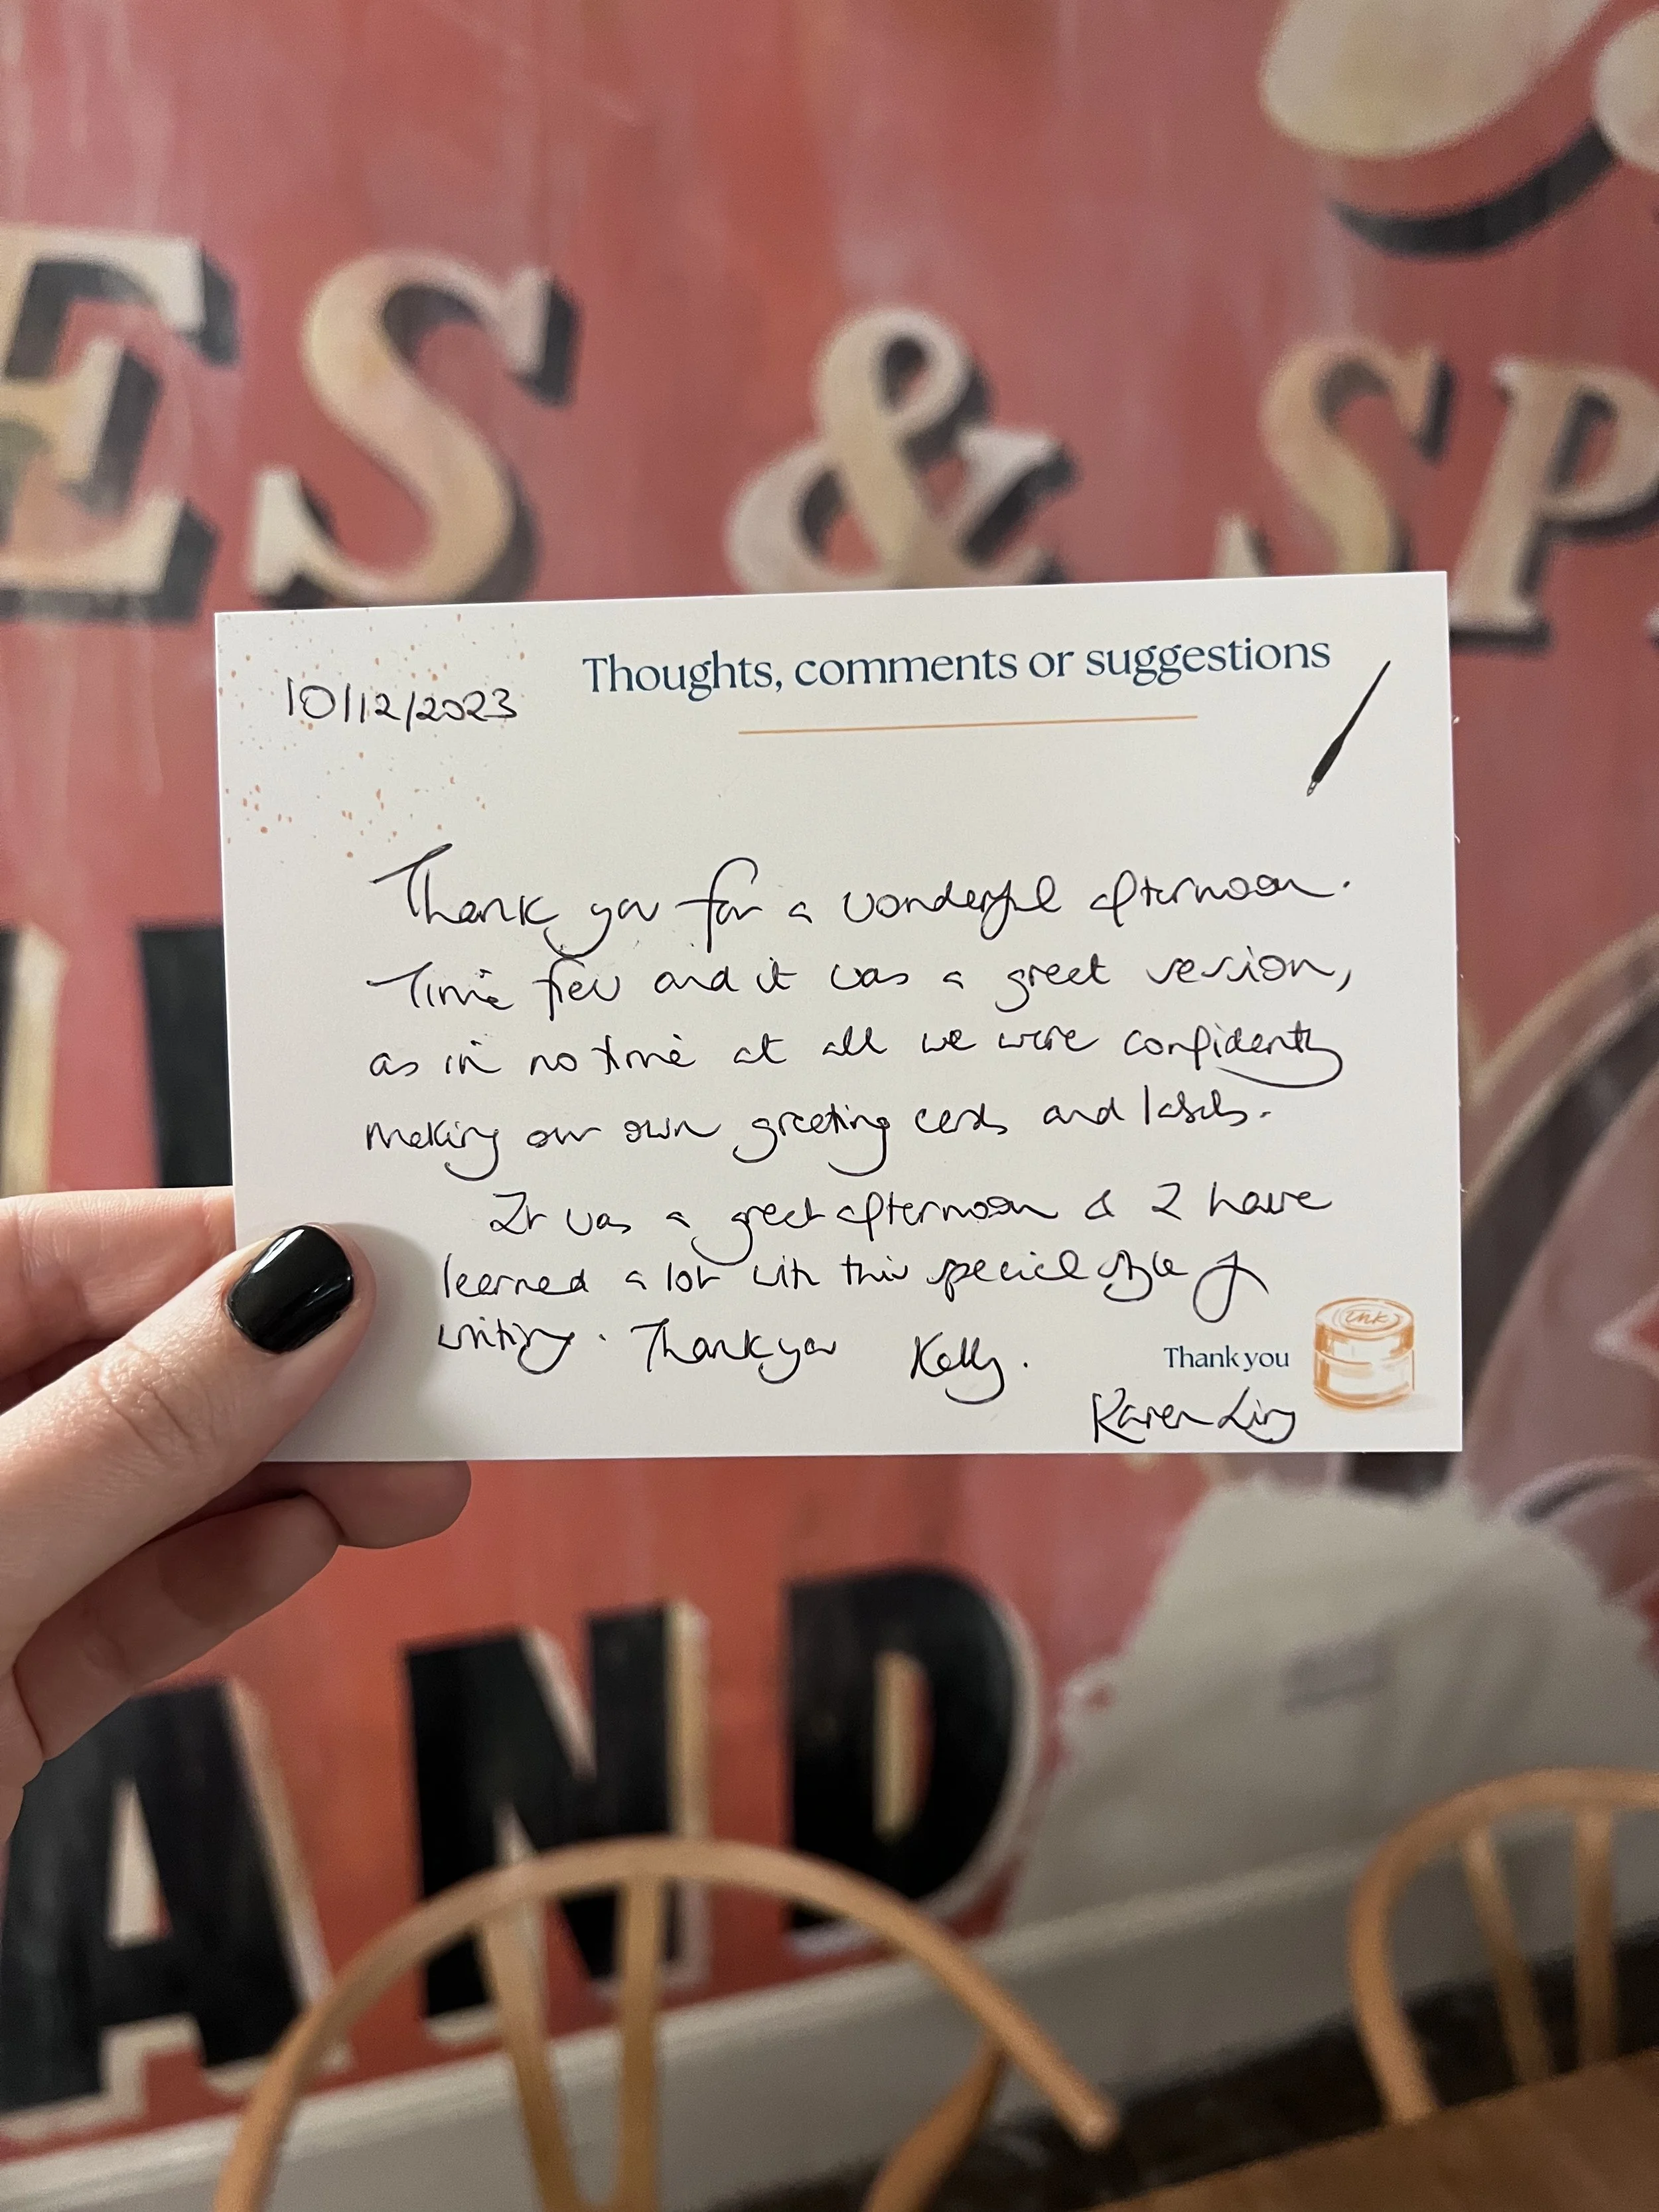 ES & SP
10/12/2023
Thoughts, comments or suggestions
Thank you for a wonderful afternoon.
Time flew and it was a great session,
as in no time at all we were confidently
making our own greeting cards and labels.
It was a great afternoon & I have
learned a lot with this special style of
writing. Thank you Kelly.
Ink
Thank you
Karen Ling
AND